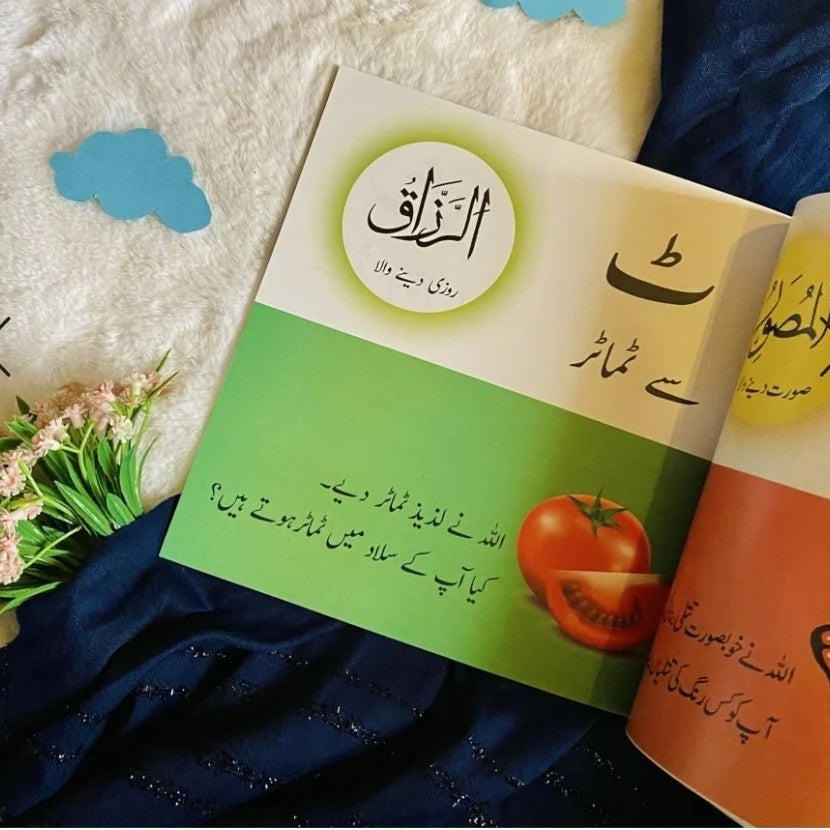 المُصَوِّ
صورت دینے وا
اللہ نے خوبصورت تتلی
آپ کو کس رنگ کی تتلیاں
الرَّزَّاقُ
روزی دینے والا
ٹ
سے ٹماٹر
اللہ نے لذیذ ٹماٹر دیے۔
کیا آپ کے سلاد میں ٹماٹر ہوتے ہیں؟